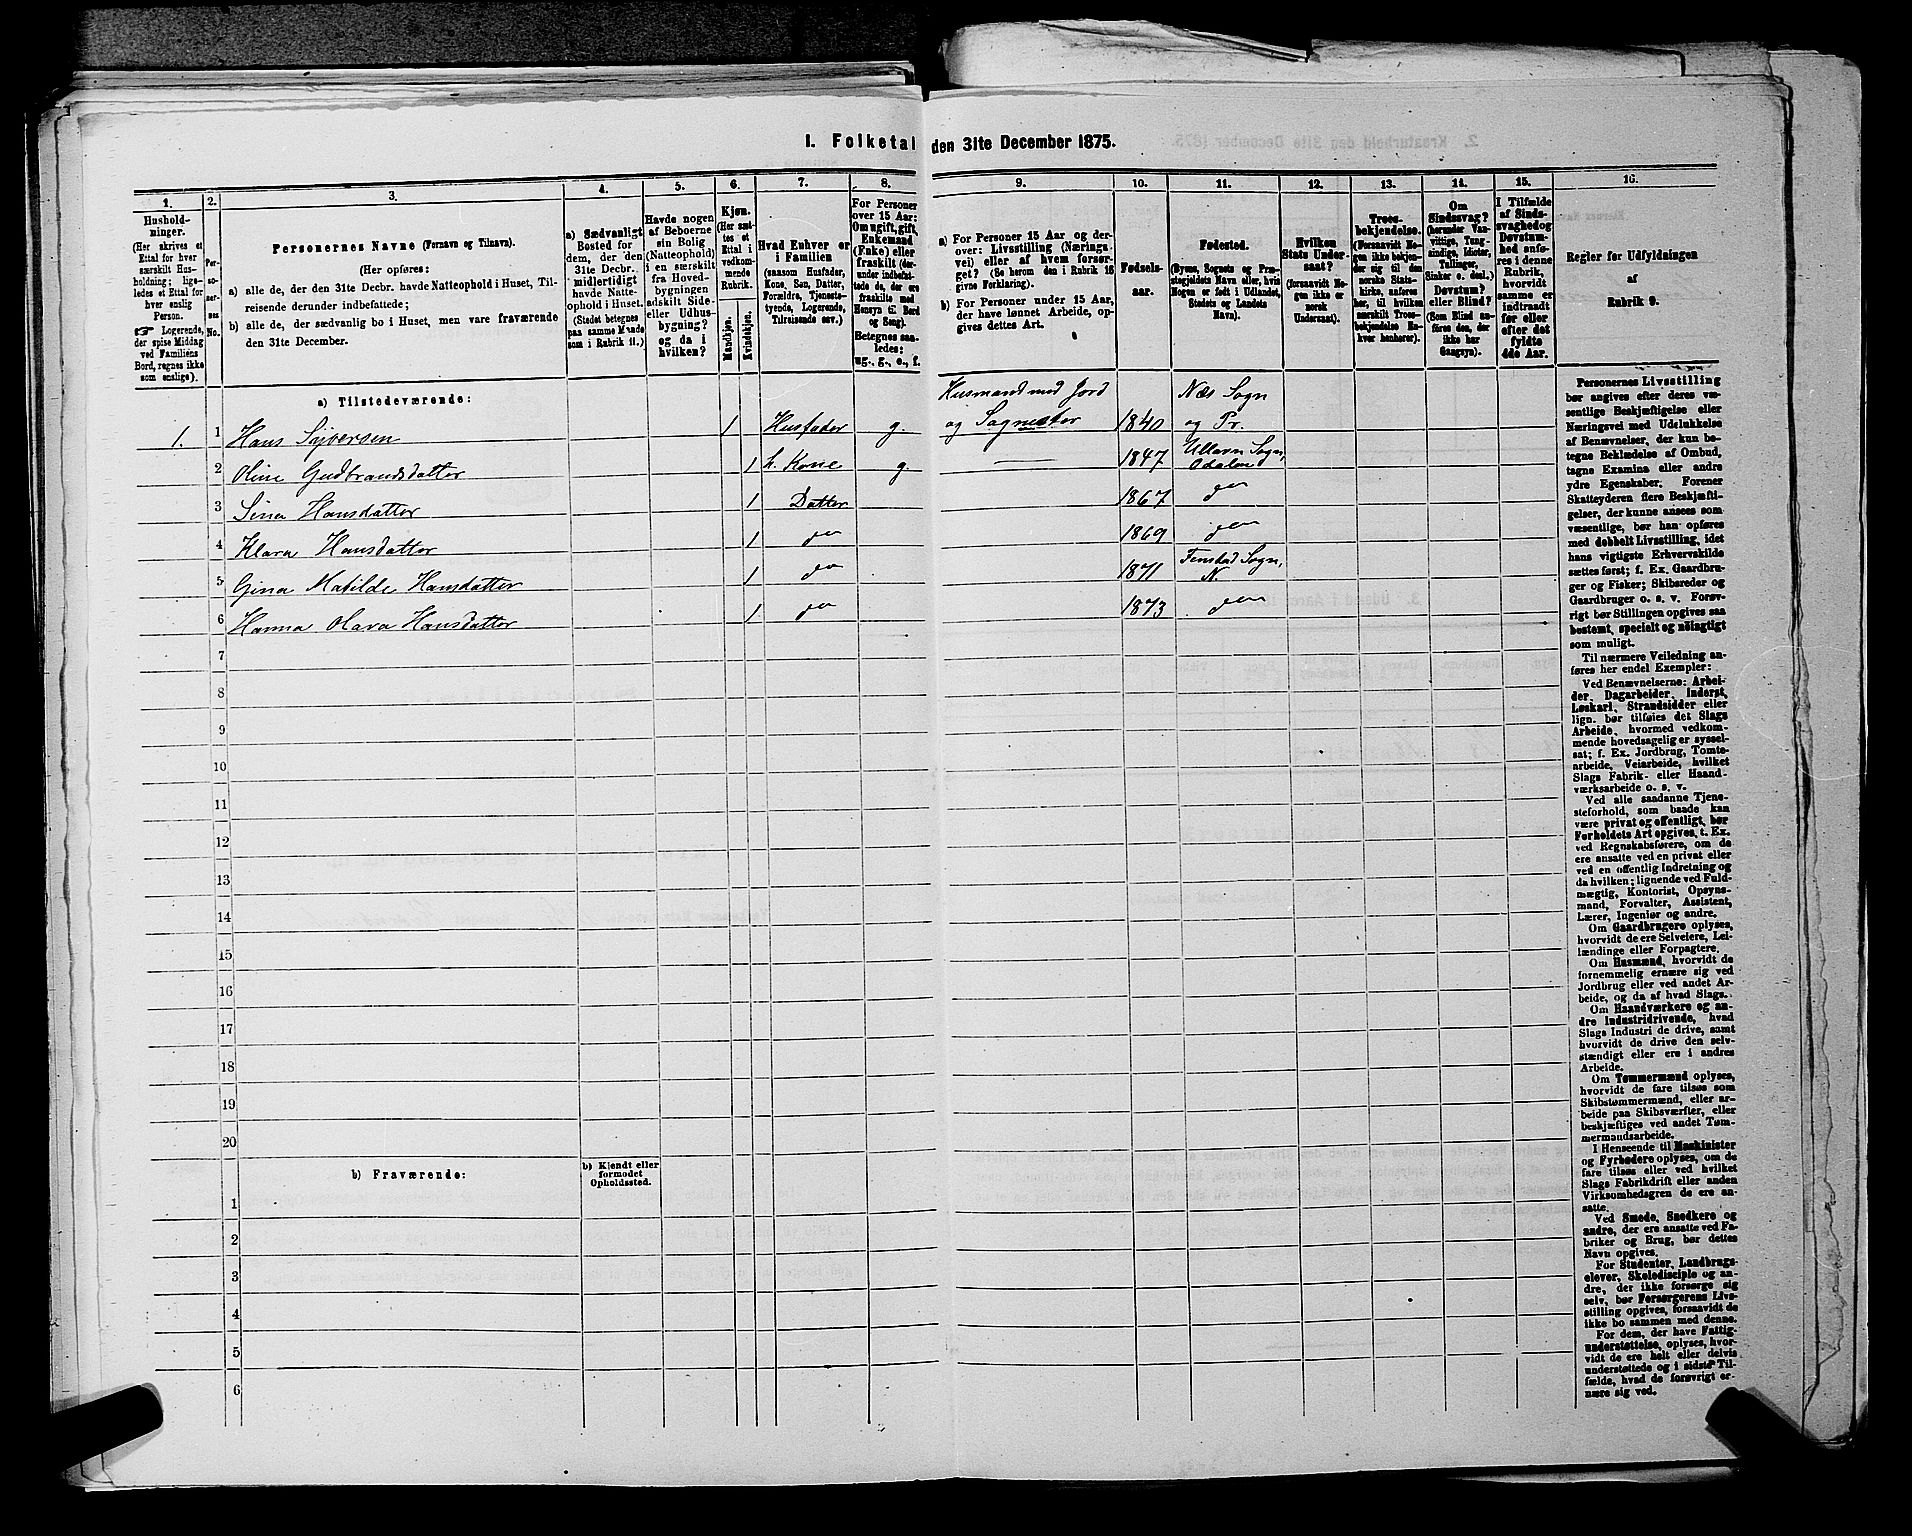 1. Folketal den 31te December 1875.
1.
2.
3.
4.
5.
6.
7.
8.
9.
10.
11.
12.
13.
14.
15.
16.
Hushold-
ninger.
(Her skrives et
Ettal for hver
særskilt Hus-
holdning; lige-
ledes et Ettal for
hver enslig
Person.
☞ Logerende,
der spise Middag
ved Familiens
Bord, regnes ikke
som enslige).
Per-
so-
ner-
nes
No.
Personernes Navne (Fornavn og Tilnavn).
(Her opføres:
a) alle de, der den 31te Decbr. havde Natteophold i Huset, Til-
reisende derunder indbefattede;
b) alle de, der sædvanlig bo i Huset, men vare fraværende
den 31te December.
a) Sædvanligt
Bosted for
dem, der den
31te Decbr.
midlertidigt
havde Natte-
ophold i Huset.
(Stedet betegnes
paa samme Maade
som i Rubrik 11.)
Havde nogen
af Beboerne
sin Bolig
(Natteophold)
i en særskilt
fra Hoved-
bygningen
adskilt Side-
eller Udhus-
bygning?
og da i
hvilken?
Kjøn.
(Her sæt-
tes et
Ettal i
vedkom-
mende
Rubrik.
Mandkjøn.
Kvindekjøn.
Hvad Enhver er
i Familien
(saasom Husfader,
Kone, Søn, Datter,
Forældre, Tjeneste-
tyende, Logerende,
Tilreisende osv.)
For Personer
over 15 Aar:
Om ugift, gift,
Enkemand
(Enke) eller
fraskilt (der-
under indbefat-
tede de, der ere
fraskilte med
Hensyn til Bord
og Seng).
Betegnes saa-
ledes:
ug., g., e., f.
a) For Personer 15 Aar og der-
over: Livsstilling (Nærings-
vei) eller af hvem forsør-
get? (Se herom den i Rubrik 16
givne Forklaring).
b) For Personer under 15 Aar,
der have lønnet Arbeide, op-
gives dettes Art.
Fødsels-
aar.
Fødested.
(Byens, Sognets og Præ-
stegjeldets Navn eller, hvis
Nogen er født i Udlandet,
Stedets og Landets
Navn).
Hvilken
Stats Under-
saat?
(forsaavidt No-
gen ikke er
norsk
Undersaat).
Troes-
bekjendelse.
(Forsaavidt No-
gen ikke bekjen-
der sig til den
norske Stats-
kirke, anføres
her, til hvilken
særskilt Troes-
bekjendelse En-
hver henhører).
Om
Sindssvag?
(herunder Van-
vittige, Tung-
sindige, Idioter,
Tullinger,
Sinker o. desl.)
Døvstum?
eller Blind?
(Som Blind an-
føres den, der
ikke har
Gangsyn).
I Tilfælde
af Sinds-
svaghed og
Døvstum-
hed anfø-
res i denne
Rubrik,
hvorvidt
samme er
indtraadt
før eller
efter det
fyldte
4de Aar.
Regler for Udfyldningen
af
Rubrik 9.
a) Tilstedeværende:
Husmand med Jord Næs Sogn
1. 1 Hans Sijversen 1 Husfader g. og Sagmester 1840 og Pr.
Ullern Sogn,
2 Oline Gudbrandsdatter 1 h. Kone g — 1847 Odalen
3 Sina Hansdatter 1 Datter 1867 do
4 Klara Hansdatter 1 do 1869 do
Fenstad Sogn,
5 Gina Matilde Hansdatter 1 do 1871 N.
6 Hanna Olava Hansdatter 1 do 1873 do
7
8
9
10
11
12
13
14
15
16
17
18
19
20
b) Fraværende:
b) Kjendt eller
formodet
Opholdssted.
1
2
3
4
5
6
Personernes Livsstilling
bør angives efter deres væ-
sentlige Beskjæftigelse eller
Næringsvei med Udelukkelse
af Benævnelser, der kun be-
tegne Beklædelse af Ombud,
tagne Examina eller andre
ydre Egenskaber. Forener
Skatteyderen flere Beskjæfti-
gelser, der kunne ansees som
væsentlige, bør han opføres
med dobbelt Livsstilling, idet
hans vigtigste Erhvervskilde
sættes først; f. Ex. Gaardbru-
ger og Fisker; Skibsreder og
Gaardbruger o. s. v. Forøv-
rigt bør Stillingen opgives saa
bestemt, specielt og nøiagtigt
som muligt.
Til nærmere Veiledning an-
føres her endel Exempler:
Ved Benævnelserne: Arbei-
der, Dagarbeider, Inderst,
Løskarl, Strandsidder eller
lign. bør tilføies det Slags
Arbeide, hvormed vedkom-
mende hovedsagelig er syssel-
sat; f. Ex. Jordbrug, Tomte-
arbeide, Veiarbeide, hvilket
Slags Fabrik- eller Haand-
værksarbeide o. s. v.
Ved alle saadanne Tjene-
steforhold, som baade kan
være privat og offentligt, bør
Forholdets Art opgives, t. Ex.
ved Regnskabsførere, om de
ere ansatte ved en privat eller
ved en offentlig Indretning og
da hvilken; lignende ved Fuld-
mægtig, Kontorist, Opsyns-
mand, Forvalter, Assistent,
Lærer, Ingeniør og andre.
Om Gaardbrugere oplyses,
hvorvidt de ere Selveiere, Lei-
lændinge eller Forpagtere.
Om Husmænd, hvorvidt de
fornemmelig ernære sig ved
Jordbrug eller ved andet Ar-
beide, og da af hvad Slags.
Om Haandværkere og an-
dre Industridrivende, hvad
Slags Industri de drive, samt
hvorvidt de drive den selv-
stændigt eller ere i andres
Arbeide.
Om Tømmermænd oplyses,
hvorvidt de fare tilsøs som
Skibstømmermænd, eller ar-
beide paa Skibsværfter, eller
beskjæftiges ved andet Tøm-
mermandsarbeide.
I Henseende til Maskinister
og Fyrbødere oplyses, om de
fare tilsøs eller ved hvilket
Slags Fabrikdrift eller anden
Virksomhedsgren de ere an-
satte.
Ved Smede, Snedkere og
andre, der ere ansatte ved Fa-
briker og Brug, bør dettes
Navn opgives.
For Studenter, Landbrugs-
elever, Skoledisciple og an-
dre, der ikke forsørge sig
selv, bør Forsørgerens Livs-
stilling opgives, forsaavidt de
ikke bo sammen med denne.
For dem, der have Fattig-
understøttelse, oplyses, hvor-
vidt de ere helt eller delvis
understøttede og i sidste Til-
fælde, hvad de forøvrigt er-
nære sig ved.